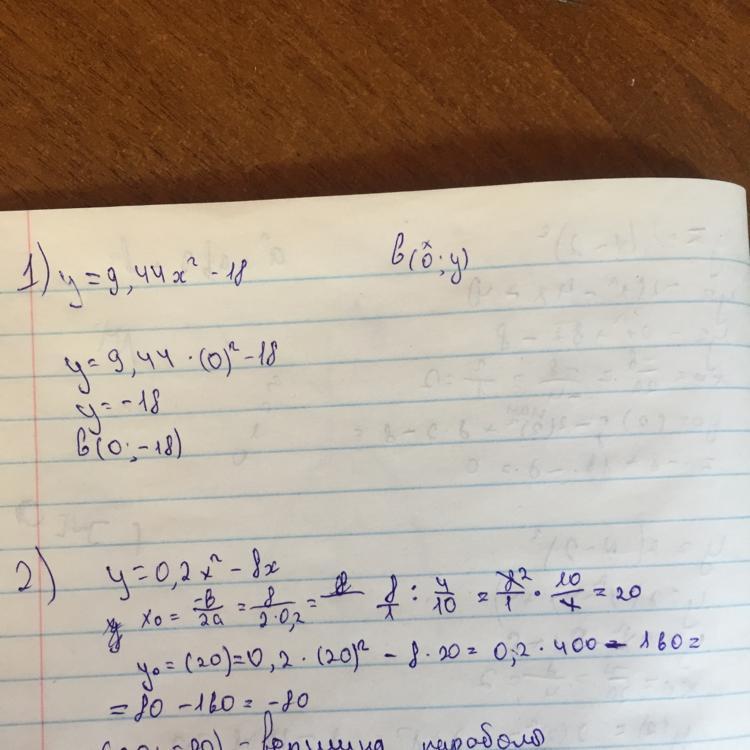 1) y = 9,44x² - 18
в(0; y)
x
y = 9,44 · (0)² - 18
y = -18
в(0; -18)
2) y = 0,2x² - 8x
x₀ = -в/2a = 8/2·0,2 = 8/1 : 4/10 = 8²/1 · 10/4 = 20
y₀ = (20) = 0,2 · (20)² - 8 · 20 = 0,2 · 400 - 160 =
= 80 - 160 = -80
- вершина